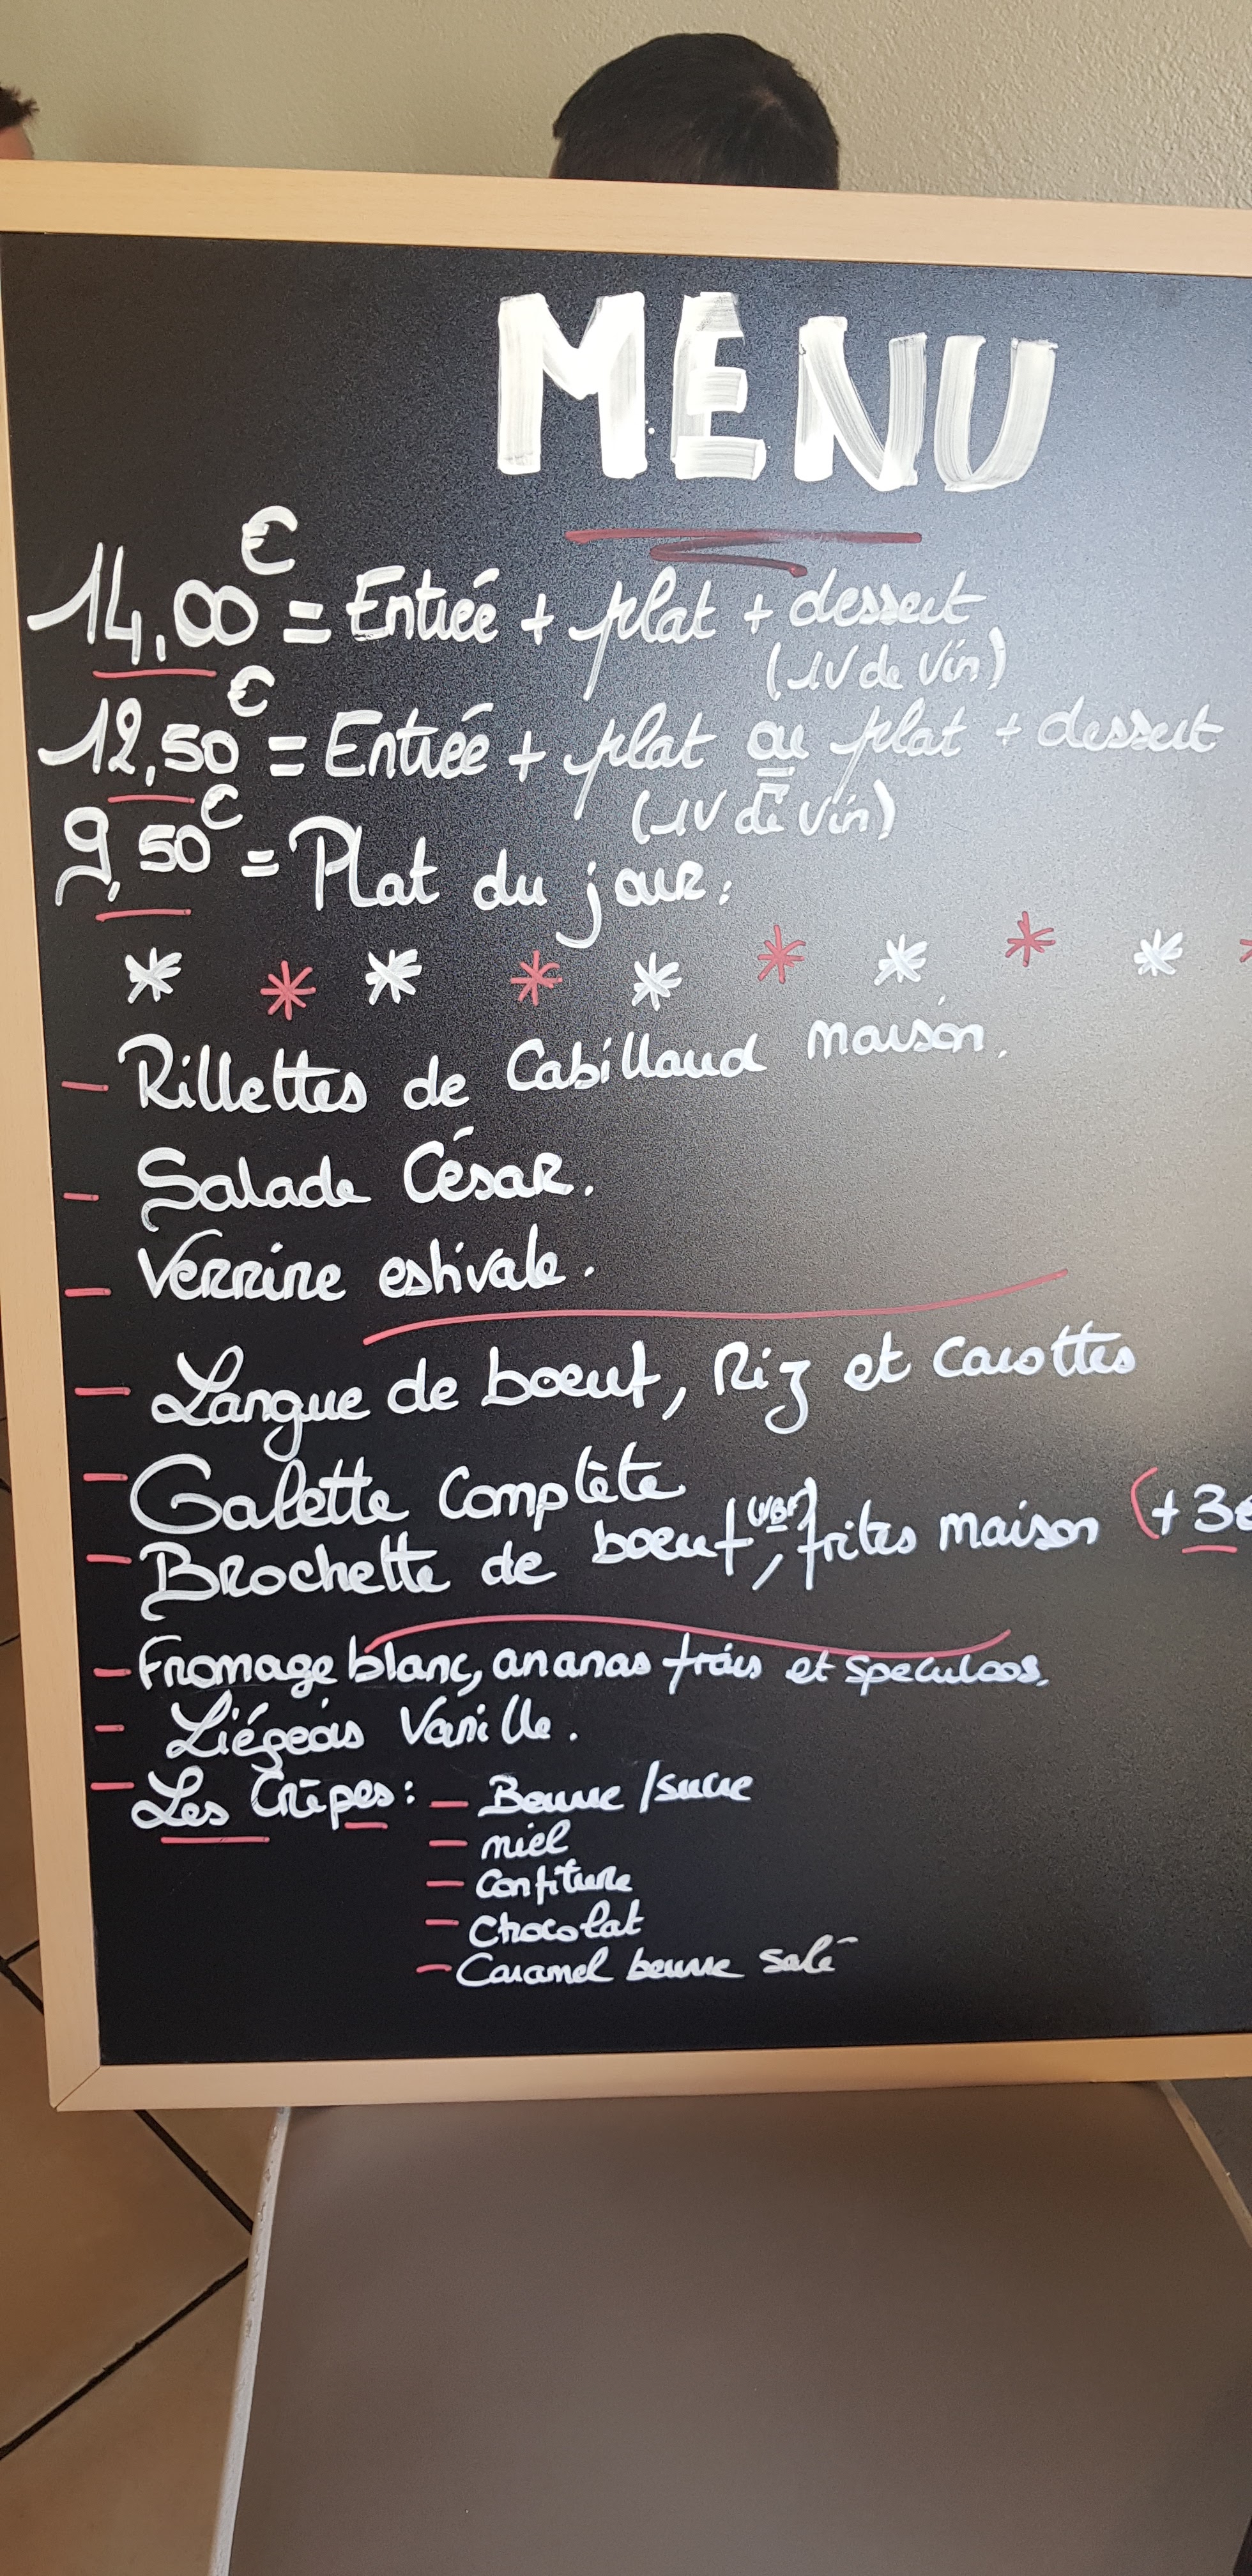 MENU
14,00€ = Entrée + plat + dessert
(1V de Vin)
12,50€ = Entrée + plat ou plat + dessert
(1V de Vin)
9,50€ = Plat du jour:
* * * * * * * * *
- Rillettes de Cabillaud maison.
- Salade César.
- Verrine estivale.
- Langue de boeuf, Riz et Carottes
- Galette Complète
- Brochette de boeuf (VBF), frites maison (+3€
- Fromage blanc, ananas frais et speculoos.
- Liégeois Vanille.
- Les Crêpes: - Beurre/sucre
- miel
- Confiture
- Chocolat
- Caramel beurre salé